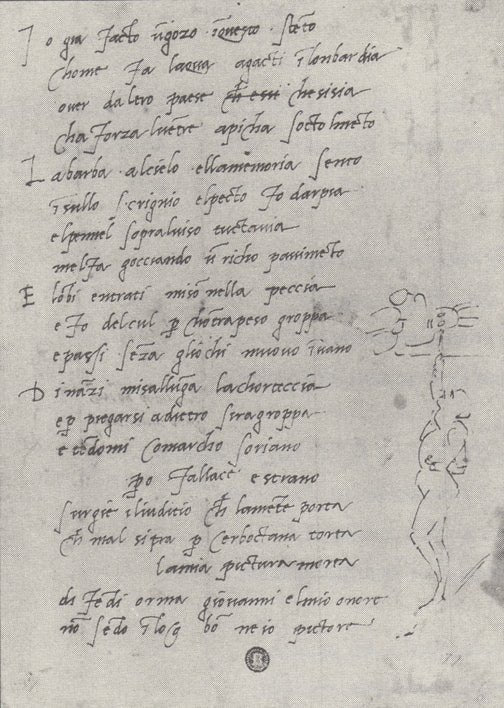 Io gia facto ũgozo ĩquesto stẽto
chome fa laqua agacti ĩ lonbardia
over daltro paese che essi chesisia
cha forza luẽtre apicha socto lmẽto
La barba alcielo ellamemoria sento
ĩsullo scrignio elpecto fo darpia
elpennel sopraluiso tuctavia
melfa gocciando ũ richo pavimẽto
E lobi entrati misonella peccia
e fo delcul p chõtrapeso groppa
e passi sẽza gliochi muovo ĩvano
Dinãzi misallũga lachorteccia
e p piegarsi adietro siragroppa
e tẽdomi comarcho soriano
po fallace e strano
surgie iliuditio ch lamẽte porta
ch mal si tra p cerboctana torta
lamia pictura morta
difẽdi orma giovanni elmio onore
nõ sẽdo ĩ bõ ne io pictore